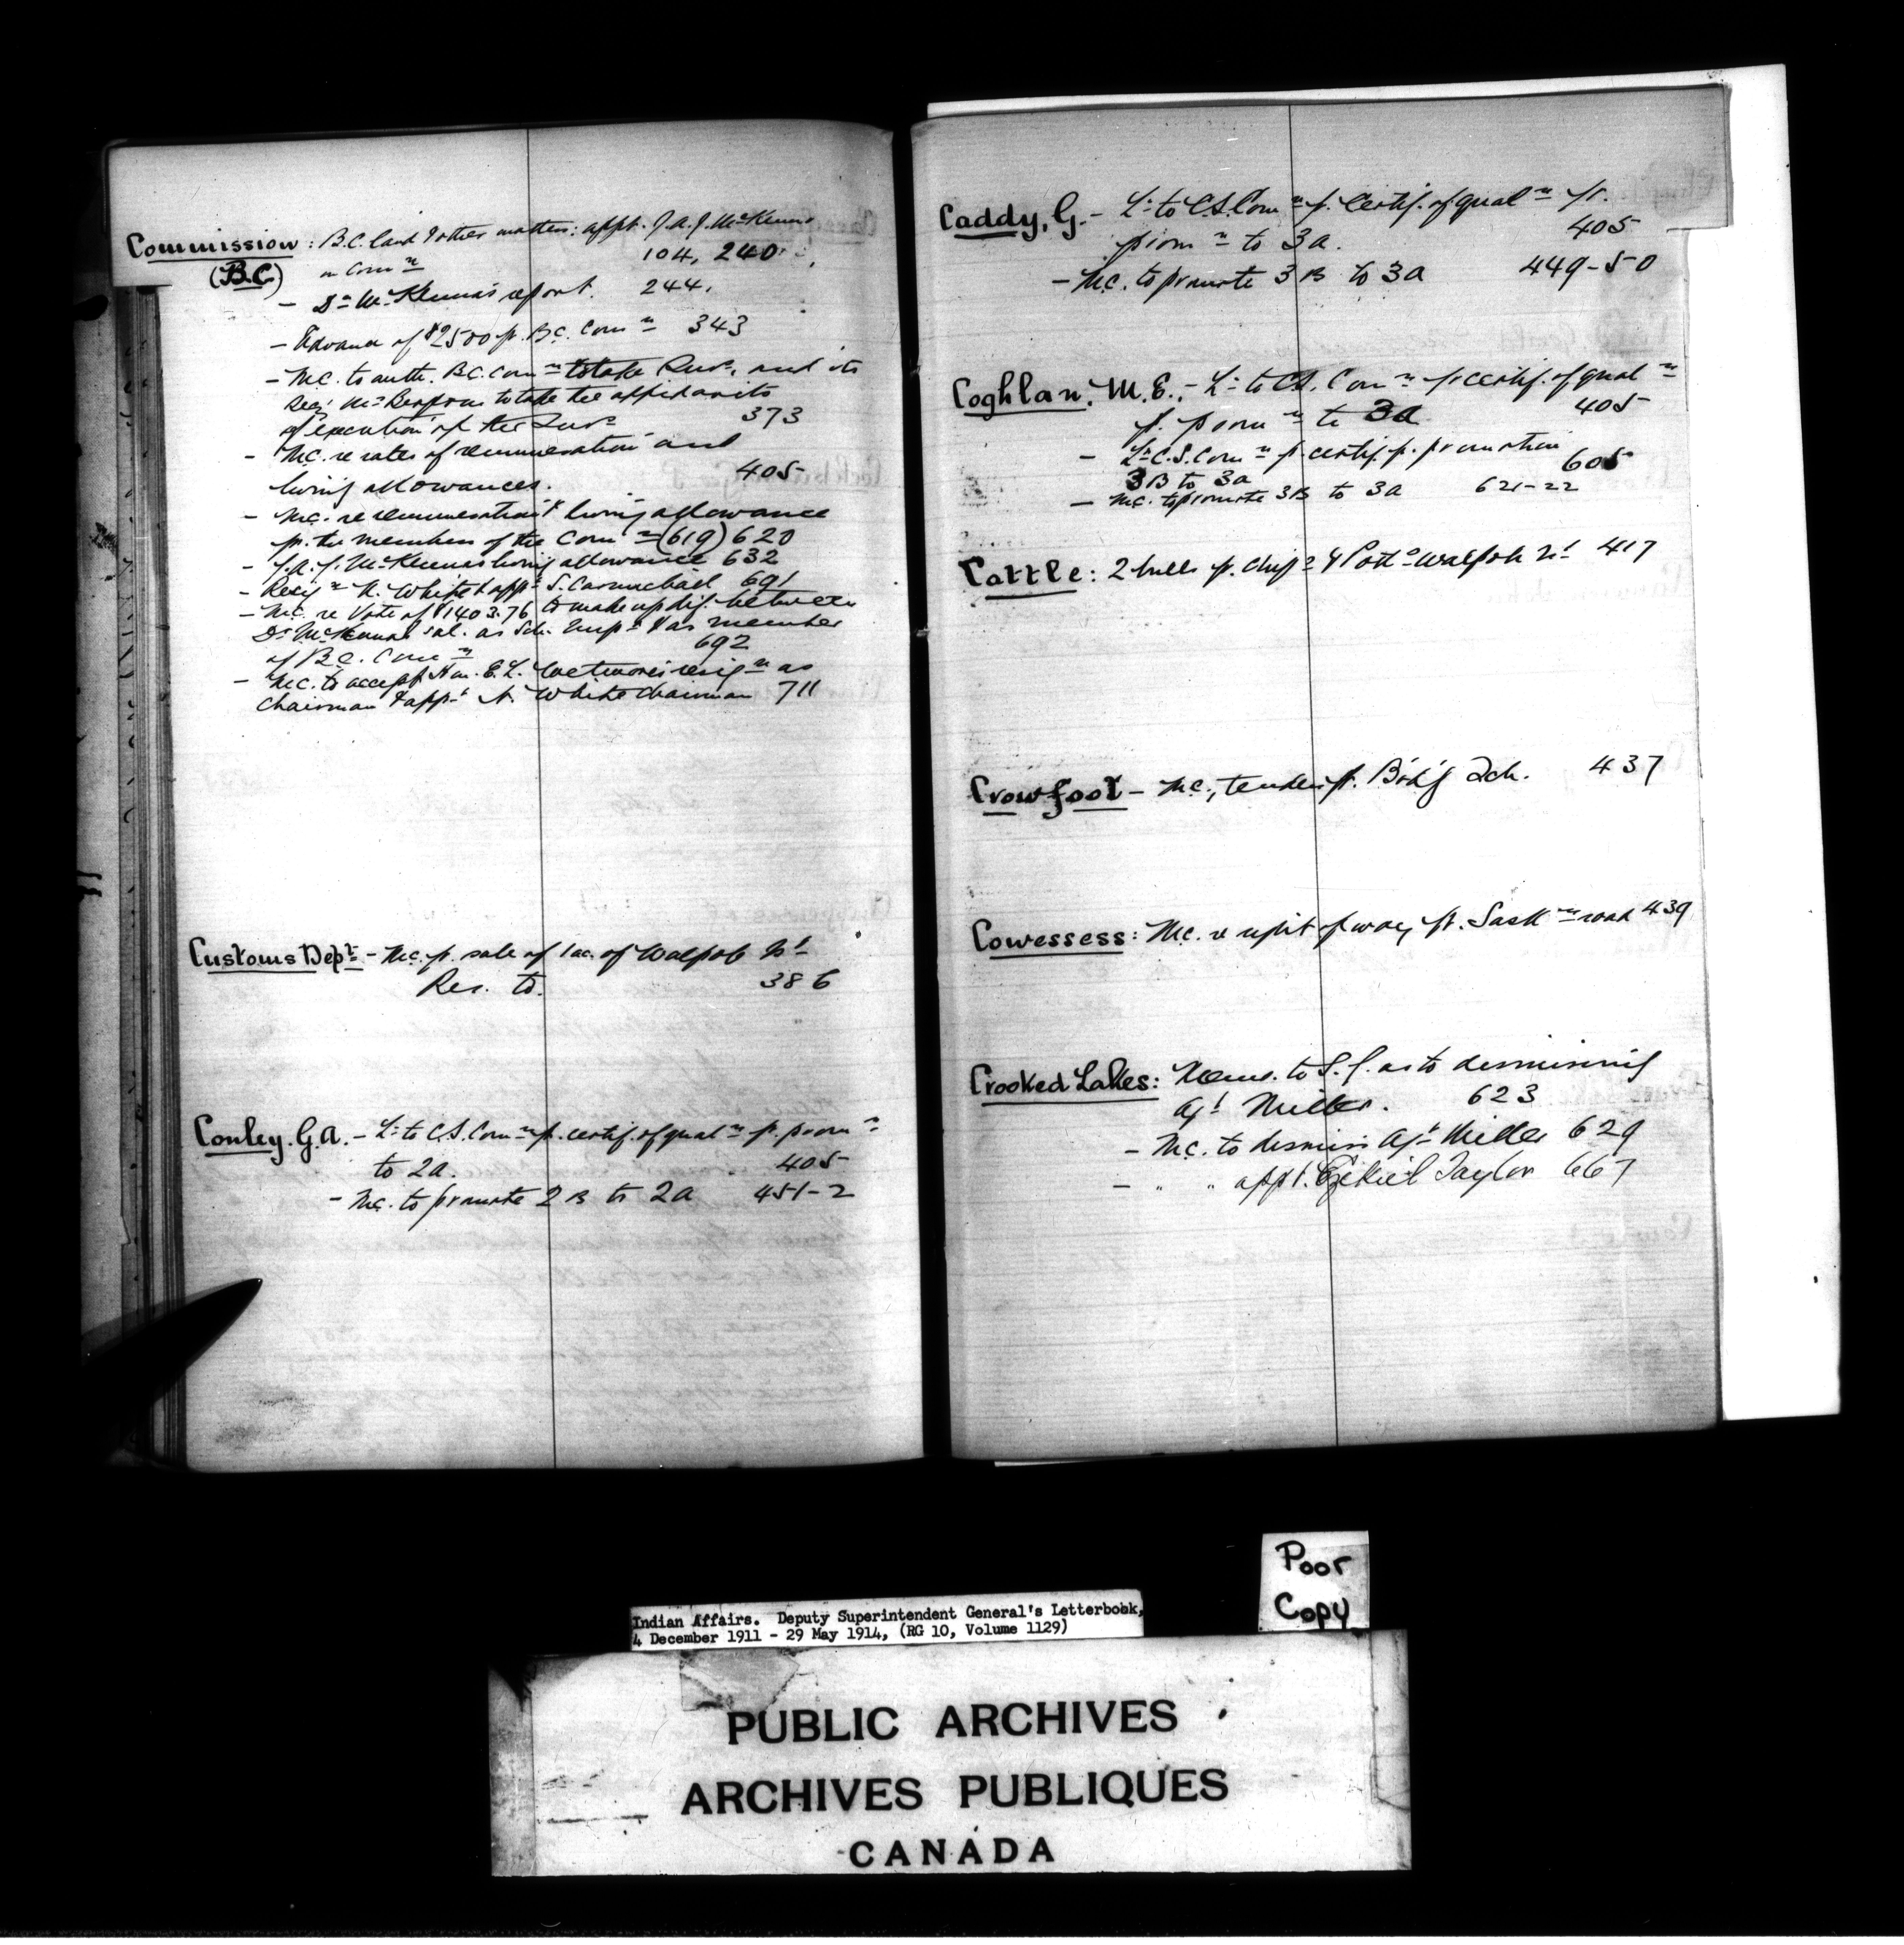 Commission : B.C. land & other matters: appt. J.A.J. McKenna
(B.C) on Comn 104, 240
- Dr McKenna's report. 244.
- Advance of $2500 p. B.C. Comn 343
- M.C. to auth. B.C. Comn to take and its
Mr to take the affidavits
of execution of the 373
- M.C. re rates of remuneration and
living allowances. 405
- M.C. re remuneration & living allowance
p. the members of the Comn (619) 620
- J.A.J. McKenna's living allowance 632
- Resign N. White & appt S. Carmichael 691
- M.C. re Vote of $1403.76 to make up dif. between
Dr McKenna's sal. as Sch. Inspr & as member
of B.C. Comn 692
- M.C. to accept Hon. E.L. Wetmore's resign as
Chairman & appt N. White Chairman 711
Customs Dept - M.C. p. sale of 1 ac. of Walpole Isl
Res. to. 386
Conley. G.A. - Lr to C.S. Comn p. certif. of qualn p. promn
to 2a. 405
- M.C. to promote 2B to 2a 451-2
Caddy, G. - Lr to C.S. Comn p. Certif. of qualn fr.
promn to 3a. 405
- M.C. to promote 3B to 3a 449-50
Coghlan, M.E. - Lr to C.S. Comn p. certif. of qualn
p. promn to 3a 405
- Lr C.S. Comn p. certif. p. promotion
3B to 3a 605
- M.C. to promote 3B to 3a 621-22
Cattle: 2 bulls p. Chips & Potts Walpole Isl 417
Crowfoot - M.C., tenders p. B'd'g Sch. 437
Cowessess: M.C. re right of way p. Saskn road 439
Crooked Lakes: Memo. to S.G. as to dismissing
Agt Miller. 623
- M.C. to dismiss Agt Miller 629
- " " appt. Ezekiel Taylor 667
Poor
Copy
Indian Affairs. Deputy Superintendent General's Letterbook,
4 December 1911 - 29 May 1914, (RG 10, Volume 1129)
PUBLIC ARCHIVES
ARCHIVES PUBLIQUES
CANADA